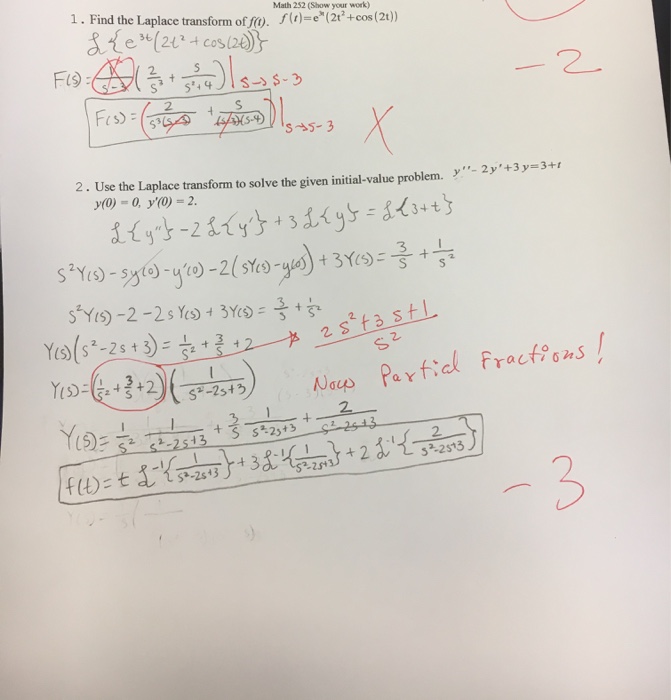 Math 252 (Show your work)
1. Find the Laplace transform of f(t). f(t)=e^3t(2t²+cos(2t))
ℒ{e^3t(2t²+cos(2t))}
-2
F(s)= (2/s³ + s/(s²+4))|s→s-3
F(s)=(2/(s³(s-3)) + s/((s-3)(s-4)))|s→s-3
X
2. Use the Laplace transform to solve the given initial-value problem. y''-2y'+3y=3+t
y(0) = 0, y'(0) = 2.
ℒ{y''}-2ℒ{y'}+3ℒ{y}=ℒ{3+t}
s²Y(s)-sy(0)-y'(0)-2(sY(s)-y(0))+3Y(s)=3/s+1/s²
s²Y(s)-2-2sY(s)+3Y(s)=3/s+1/s²
Y(s)(s²-2s+3)=1/s²+3/s+2 → (2s²+3s+1)/s²
Y(s)=(1/s²+3/s+2)(1/(s²-2s+3)) Now Partial Fractions!
Y(s)=1/s² 1/(s²-2s+3)+3/s 1/(s²-2s+3)+2/(s²-2s+3)
f(t)=tℒ⁻¹{1/(s²-2s+3)}+3ℒ⁻¹{1/(s²-2s+3)}+2ℒ⁻¹{2/(s²-2s+3)}
-3